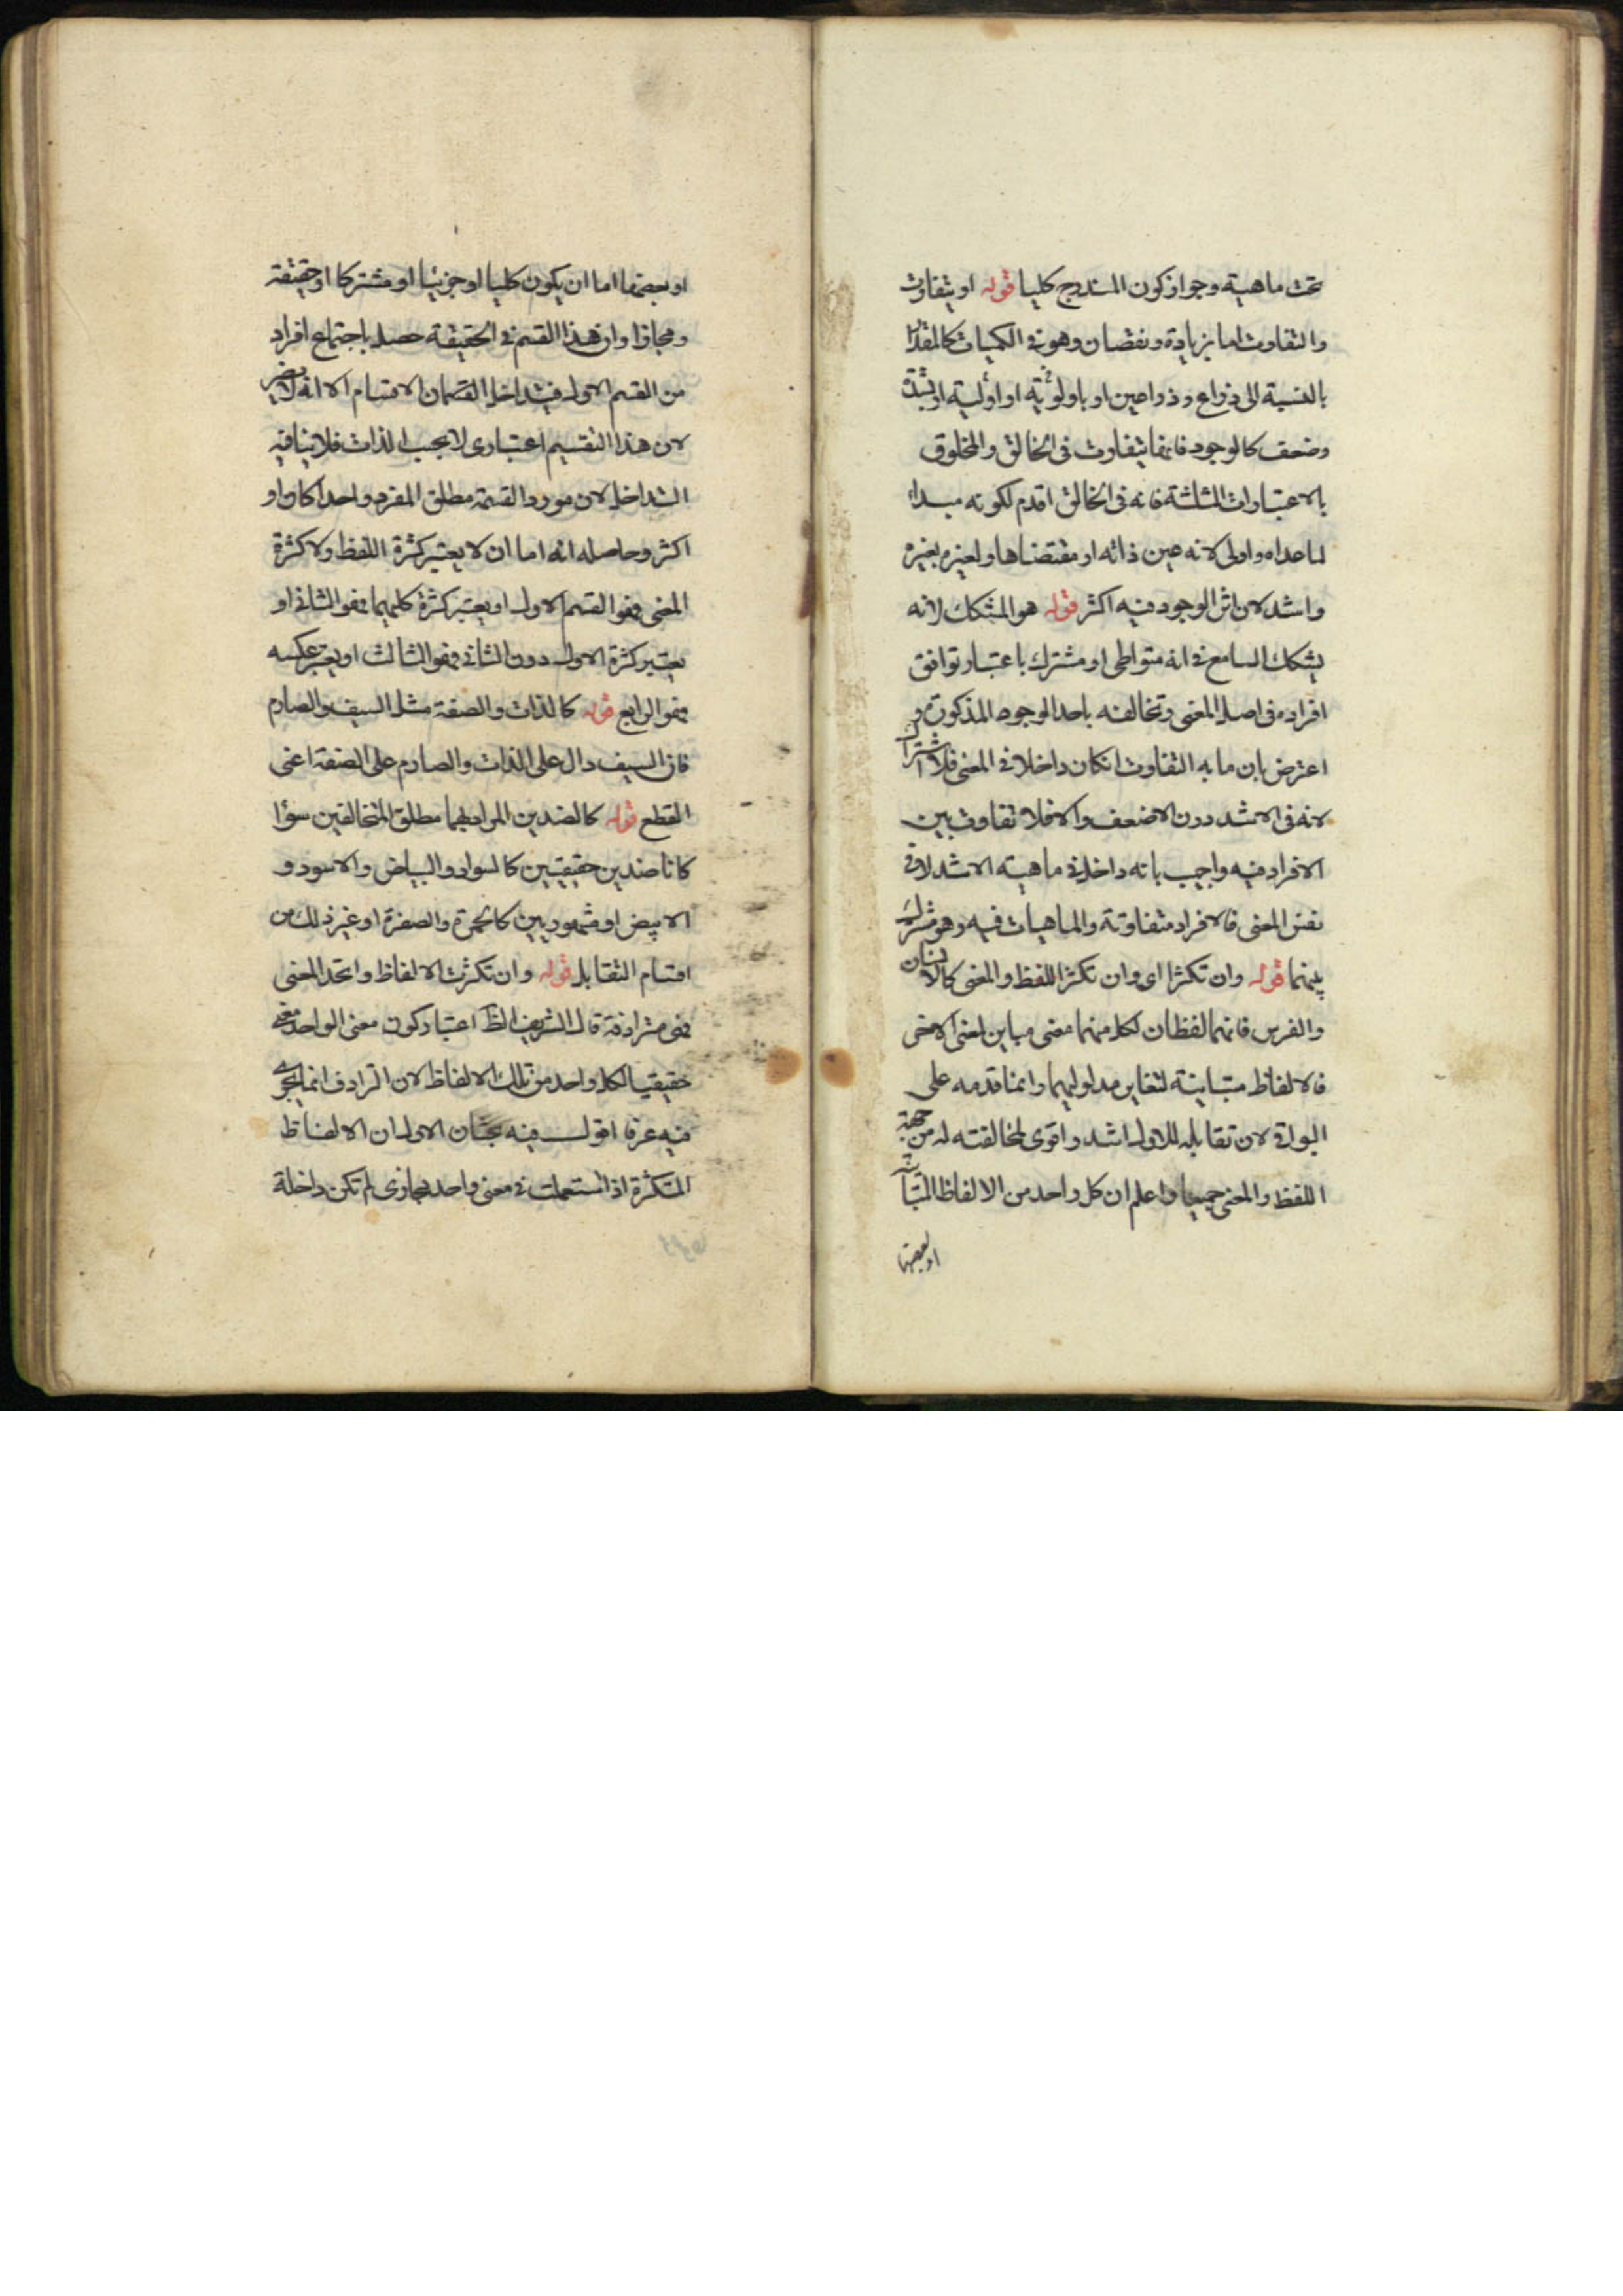 تحت ماهية وجواز كون المندرج كليا قوله او يتفاوت
والتفاوت اما بزيادة ونقصان وهو في الكميات كالمقدار
بالنسبة الى ذراع وذراعين او باولوية او اولية او بشدة
وضعف كالوجود فانها يتفاوت في الخالق والمخلوق
بالاعتبارات الثلثة فانه في الخالق اقدم لكونه مبداء
لما عداه واولى لانه عين ذاته او مقتضاها ولغيره بغيره
واشد لان اثر الوجود فيه اكثر قوله هو المشكك لانه
يشكك السامع في انه متواطى او مشترك باعتبار توافق
افراده في اصل المعنى وتخالفه باحد الوجوه المذكورة و
اعترض بان ما به التفاوت انكان داخلا في المعنى فلا اشتراك
لانه في الاشد دون الاضعف والا فلا تفاوت بين
الافراد فيه واجيب بانه داخل في ماهيته الاشد لا في
نفس المعنى فالافراد متفاوتة والماهيات فيه وهو مشترك
بينهما قوله وان تكثرا اى وان تكثر اللفظ والمعنى كالانسان
والفرس فانهما لفظان لكل منهما معنى مباين لمعنى الاخر
فالالفاظ متباينة لتغاير مدلوليهما وانما قدمه على
البواقي لان تقابله للاول اشد واقوى لمخالفته له من جهة
اللفظ والمعنى جميعا واعلم ان كل واحد من الالفاظ المتباينة
او بعضها
او بعضها اما ان يكون كليا او جزئيا او مشتركا او حقيقة
ومجازا وان هذا القسم في الحقيقة حصل باجتماع افراد
من القسم الاول فيتداخل القسمان الاقسام الا انه لا يضر
لان هذا التقسيم اعتبارى لا بحسب الذات فلا ينافيه
التداخل لان مورد القسمة مطلق المفرد واحدا كان او
اكثر وحاصله انه اما ان لا يعتبر كثرة اللفظ ولا كثرة
المعنى فهو القسم الاول او يعتبر كثرة كليهما فهو الثانى او
يعتبر كثرة الاول دون الثانى فهو الثالث او يعتبر عكسه
فهو الرابع قوله كالذات والصفة مثل السيف والصارم
فان السيف دال على الذات والصارم على الصفة اعنى
القطع قوله كالضدين المراد بهما مطلق المتخالفين سواء
كانا ضدين حقيقيين كالسواد والبياض والاسود و
الابيض او مشهوريين كالحمرة والصفرة او غير ذلك من
اقسام التقابل قوله وان تكثرت الالفاظ واتحد المعنى
فهى مترادفة قال الشريف الظ اعتبار كون معنى الواحد معنى
حقيقيا لكل واحد من تلك الالفاظ لان الترادف انما يجرى
فيه عرفا اقول فيه بحثان الاول ان الالفاظ
المتكثرة اذا استعملت في معنى واحد مجازى لم تكن داخلة